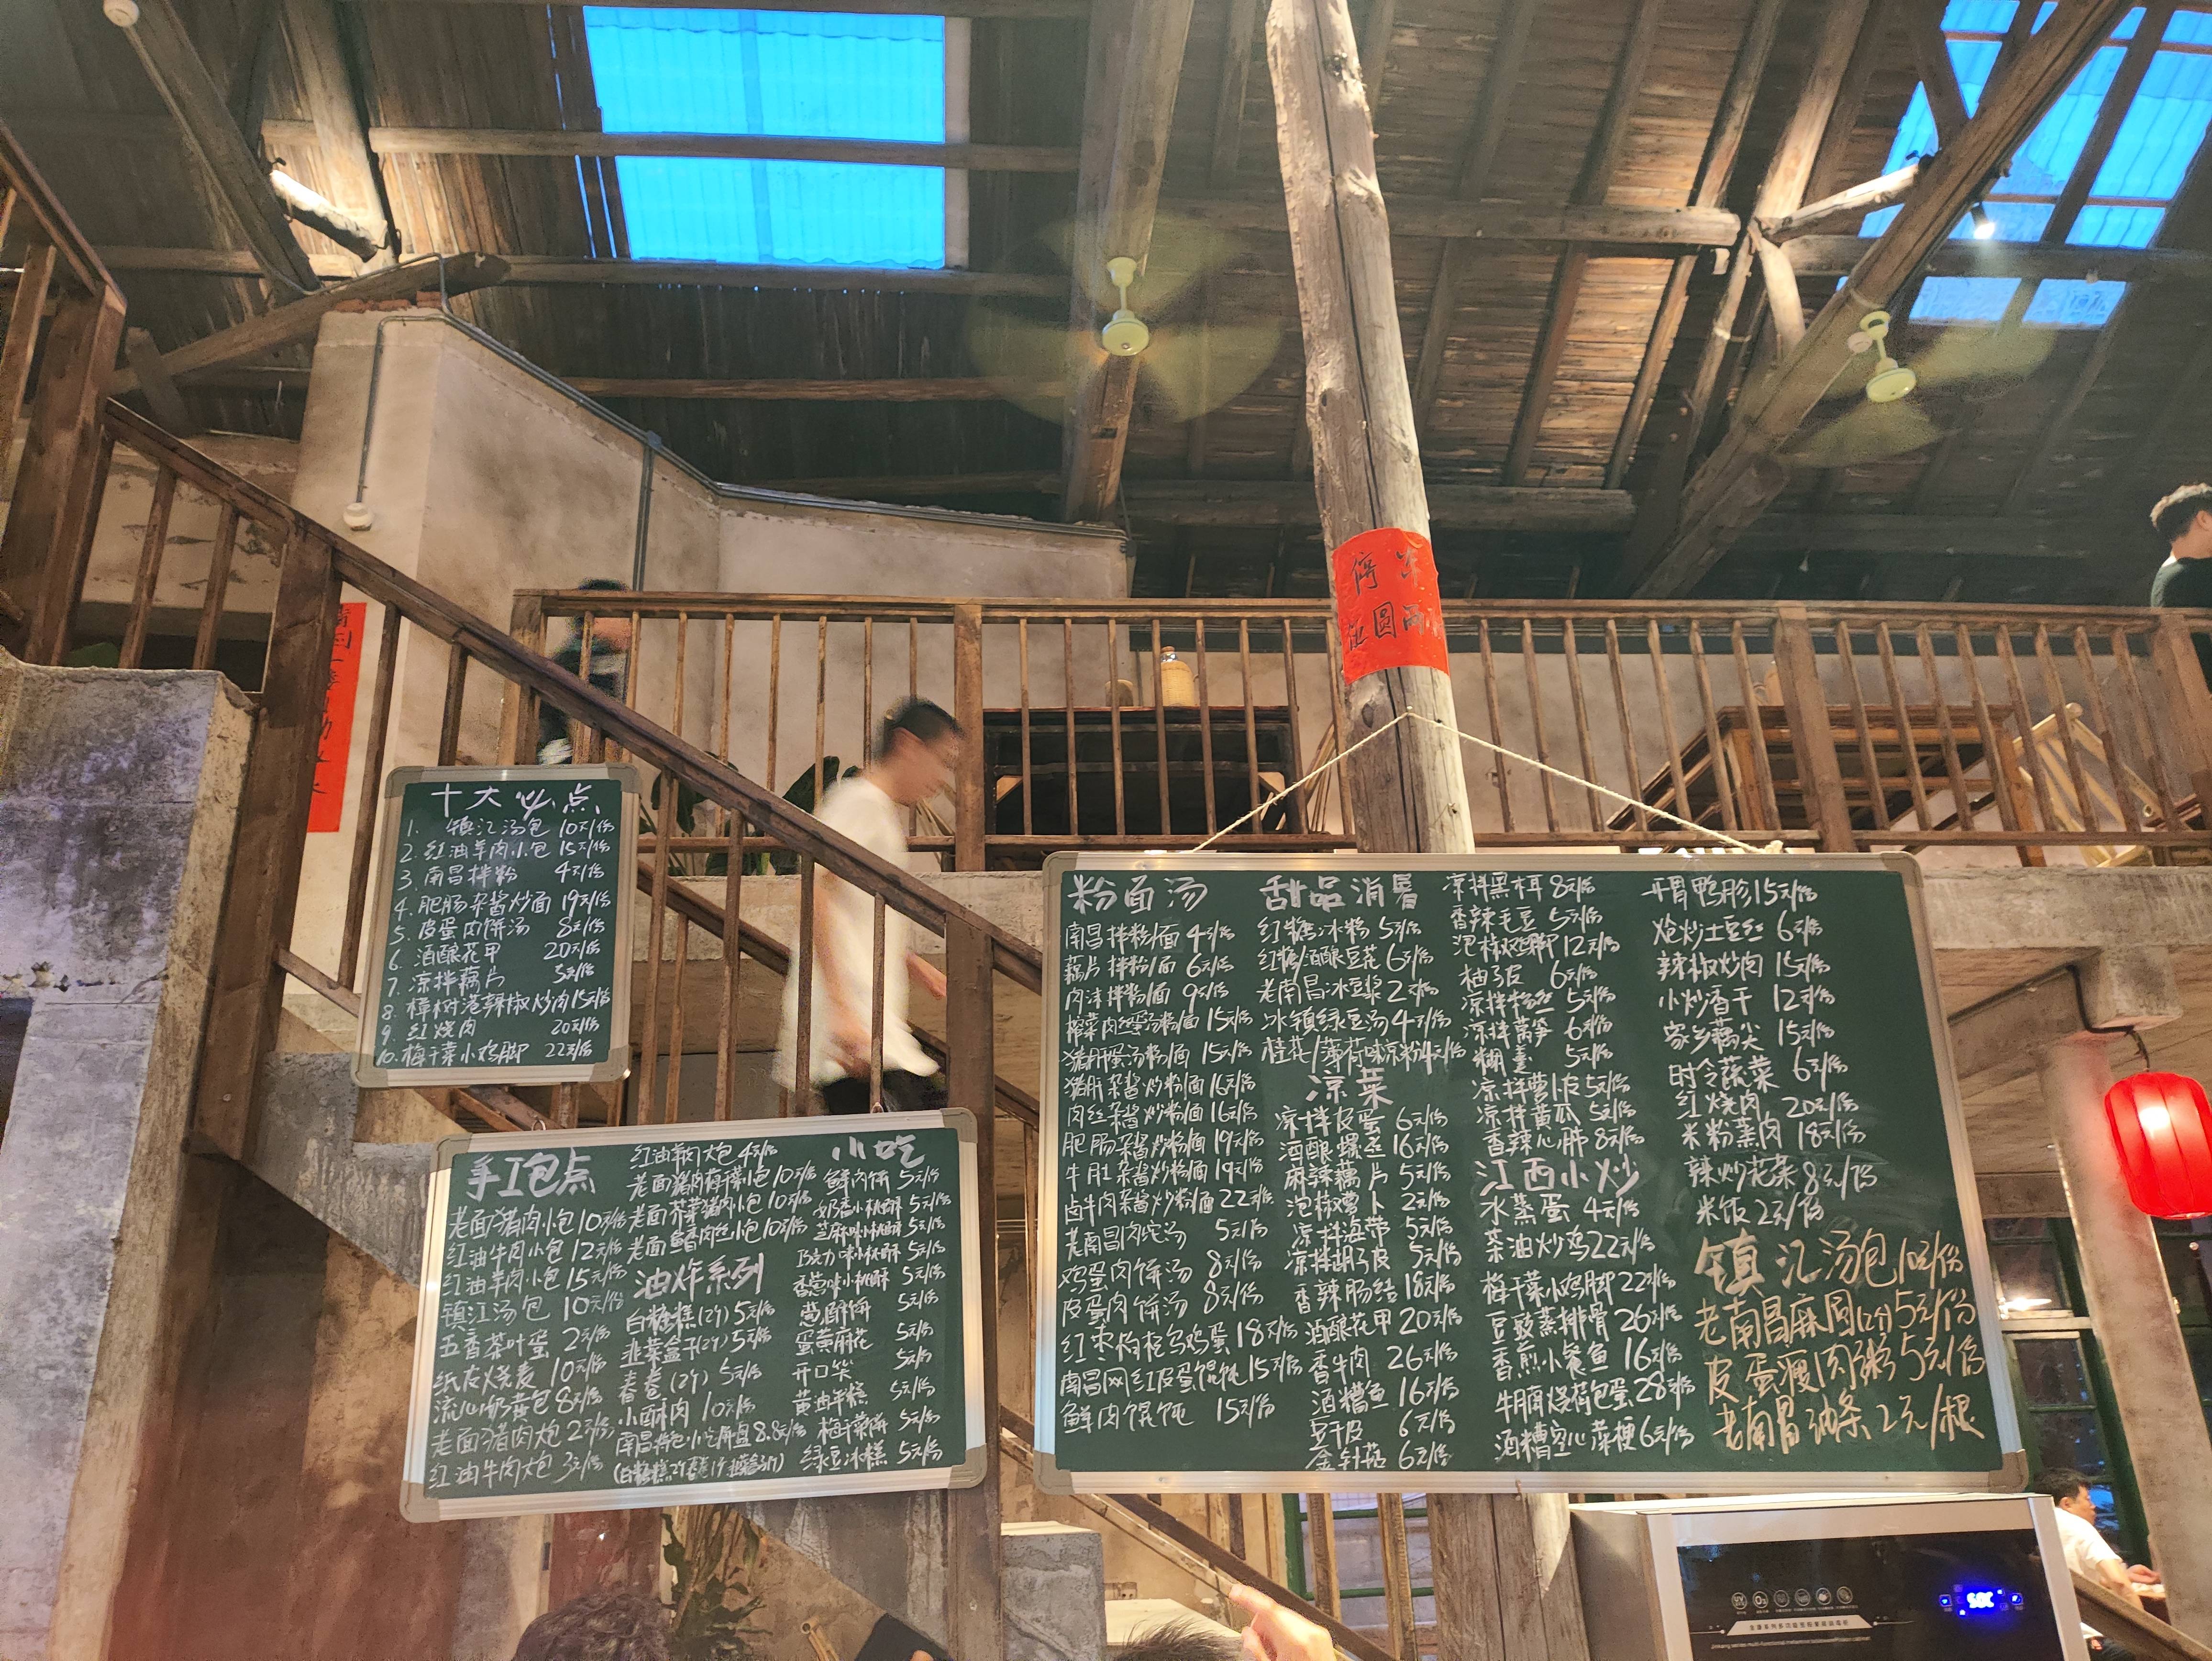 十大必点
1. 镇江汤包 10元/份
2. 红油羊肉小包 15元/份
3. 南昌拌粉 4元/份
4. 肥肠杂酱炒面 19元/份
5. 皮蛋肉饼汤 8元/份
6. 酒酿花甲 20元/份
7. 凉拌藕片 5元/份
8. 樟树港辣椒炒肉 15元/份
9. 红烧肉 20元/份
10. 梅干菜小鸡脚 22元/份
手工包点
老面猪肉小包 10元/份
红油牛肉小包 12元/份
红油羊肉小包 15元/份
镇江汤包 10元/份
五香茶叶蛋 2元/份
纸皮烧麦 10元/份
流心奶黄包 8元/份
老面猪肉大包 2元/份
红油牛肉大包 3元/份
红油羊肉大包 4元/份
老面猪肉梅干菜小包 10元/份
老面芥菜猪肉小包 10元/份
老面鱼香肉丝小包 10元/份
油炸系列
白糖糕(2个) 5元/份
韭菜盒子(2个) 5元/份
春卷(2个) 5元/份
小酥肉 10元/份
南昌特色小吃拼盘 8.8元/份
小吃
鲜肉饼 5元/份
奶香小桃酥 5元/份
芝麻味小桃酥 5元/份
巧克力味小桃酥 5元/份
香葱味小桃酥 5元/份
葱油饼 5元/份
蛋黄麻花 5元/份
开口笑 5元/份
黄油年糕 5元/份
梅干菜饼 5元/份
绿豆冰糕 5元/份
粉面汤
南昌拌粉/面 4元/份
藕片拌粉/面 6元/份
肉沫拌粉/面 9元/份
榨菜肉丝蛋汤粉/面 15元/份
猪肝蛋汤粉/面 15元/份
猪肝杂酱炒粉/面 16元/份
肉丝杂酱炒粉/面 16元/份
肥肠杂酱炒粉/面 19元/份
牛肚杂酱炒粉/面 19元/份
卤牛肉杂酱炒粉/面 22元/份
老南昌肉坨汤 5元/份
鸡蛋肉饼汤 8元/份
皮蛋肉饼汤 8元/份
红枣枸杞乌鸡蛋 18元/份
南昌网红皮蛋馄饨 15元/份
鲜肉馄饨 15元/份
甜品消暑
红糖冰粉 5元/份
红糖/酒酿豆花 6元/份
老南昌冰豆浆 2元/份
冰镇绿豆汤 4元/份
桂花/薄荷味凉粉 4元/份
凉菜
凉拌皮蛋 6元/份
酒酿螺丝 16元/份
麻辣藕片 5元/份
泡椒萝卜 2元/份
凉拌海带 5元/份
凉拌胡子皮 5元/份
香辣肠结 18元/份
酒酿花甲 20元/份
香牛肉 26元/份
酒糟鱼 16元/份
豆干皮 6元/份
金针菇 6元/份
凉拌黑木耳 8元/份
香辣毛豆 5元/份
泡椒凤脚 12元/份
柚子皮 6元/份
凉拌粉丝 5元/份
凉拌莴笋 6元/份
糊羹 5元/份
凉拌萝卜皮 5元/份
凉拌黄瓜 5元/份
香辣心肺 8元/份
江西小炒
水蒸蛋 4元/份
茶油炒鸡 22元/份
梅干菜小鸡脚 22元/份
豆豉蒸排骨 26元/份
香煎小餐鱼 16元/份
牛腩烧荷包蛋 28元/份
酒糟空心菜梗 6元/份
开胃鸭胗 15元/份
炝炒土豆丝 6元/份
辣椒炒肉 15元/份
小炒香干 12元/份
家乡藕尖 15元/份
时令蔬菜 6元/份
红烧肉 20元/份
米粉蒸肉 18元/份
辣炒花菜 8元/份
米饭 2元/份
镇江汤包 10元/份
老南昌麻圆(2个) 5元/份
皮蛋瘦肉粥 5元/份
老南昌油条 2元/根